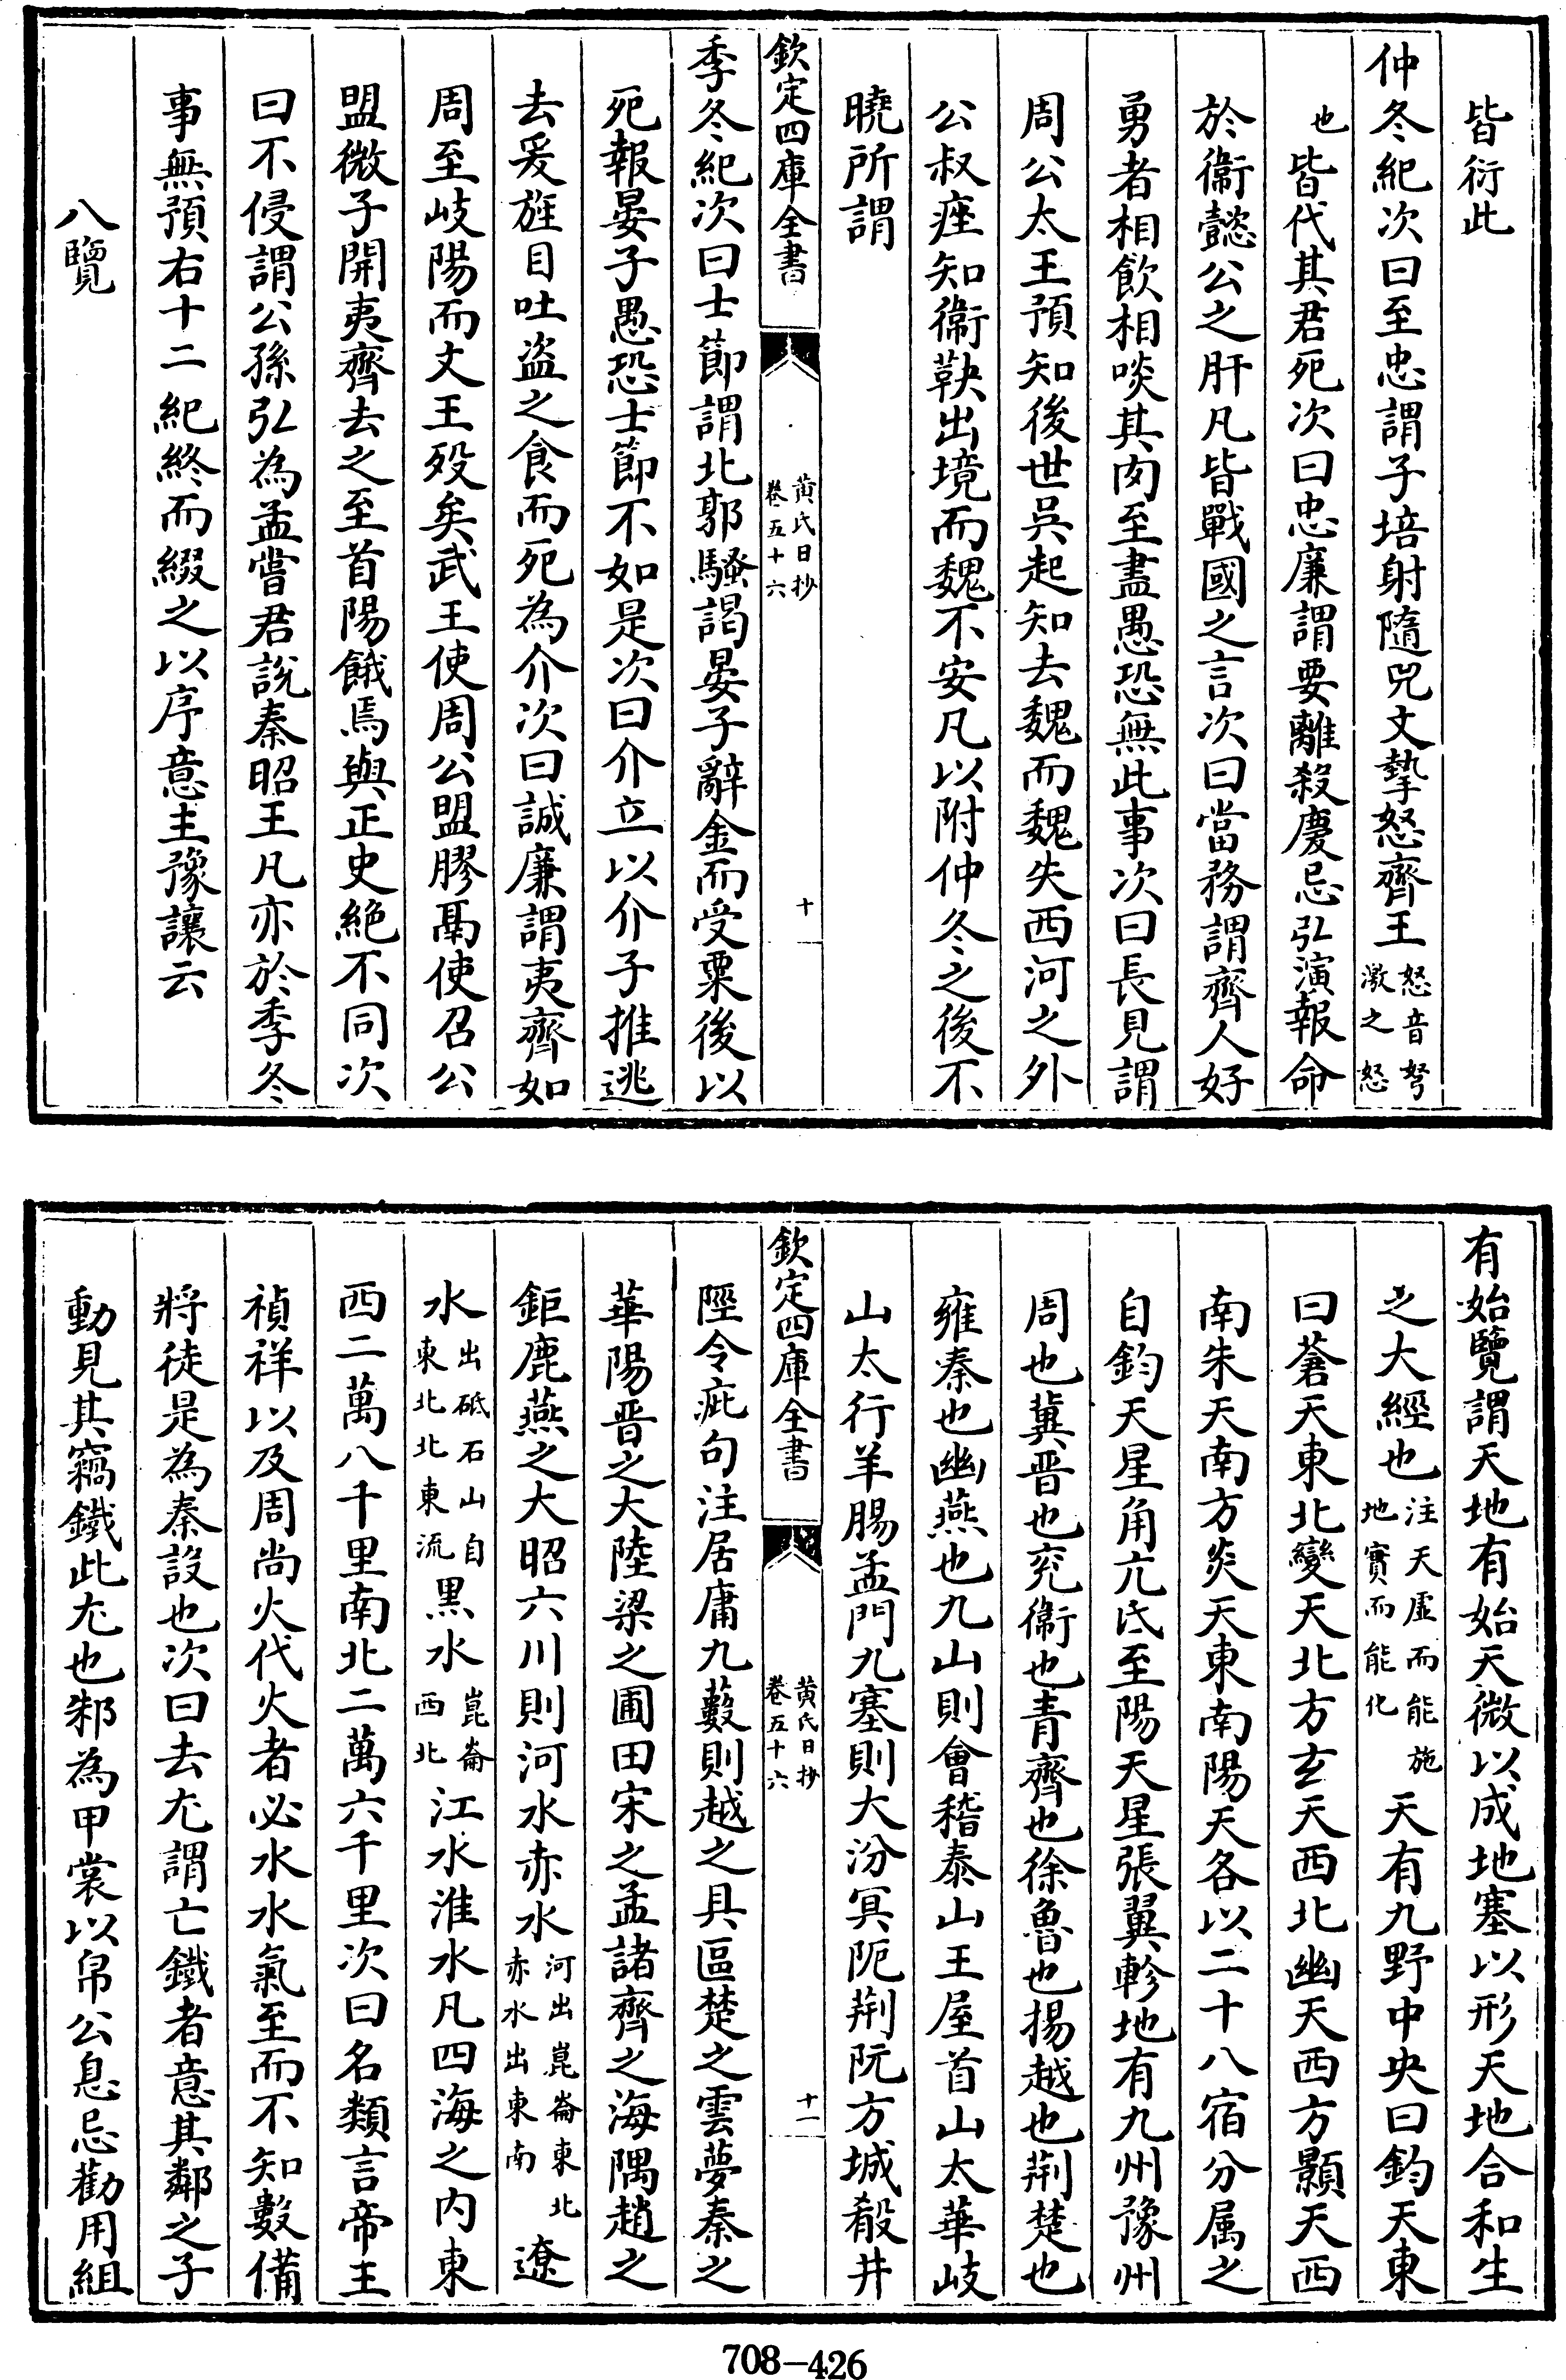 皆衍此
仲冬紀次曰至忠謂子培射隨兕文摯怒齊王怒音弩激之怒
也皆代其君死次曰忠廉謂要離殺慶忌弘演報命
於衞懿公之肝凡皆戰國之言次曰當務謂齊人好
勇者相飲相啖其肉至盡愚恐無此事次曰長見謂
周公太王預知後世吳起知去魏而魏失西河之外
公叔痤知衞鞅出境而魏不安凡以附仲冬之後不
曉所謂
欽定四庫全書
黄氏日抄
卷五十六
十
季冬紀次曰士節謂北郭騷謁晏子辭金而受粟後以
死報晏子愚恐士節不如是次曰介立以介子推逃
去爰旌目吐盗之食而死為介次曰誠廉謂夷齊如
周至岐陽而文王殁矣武王使周公盟膠鬲使召公
盟微子開夷齊去之至首陽餓焉與正史絶不同次
曰不侵謂公孫弘為孟嘗君説秦昭王凡亦於季冬
事無預右十二紀終而綴之以序意主豫讓云
八覽
有始覽謂天地有始天微以成地塞以形天地合和生
之大經也注天虛而能施地實而能化天有九野中央曰鈞天東
曰蒼天東北變天北方玄天西北幽天西方顥天西
南朱天南方炎天東南陽天各以二十八宿分属之
自鈞天星角亢氐至陽天星張翼軫地有九州豫州
周也冀晉也兖衞也青齊也徐魯也揚越也荆楚也
雍秦也幽燕也九山則會稽泰山王屋首山太華岐
山太行羊腸孟門九塞則大汾冥阨荆阮方城殽井
欽定四庫全書
黄氏日抄
卷五十六
十一
陘令疵句注居庸九藪則越之具區楚之雲夢秦之
華陽晋之大陸梁之圃田宋之孟諸齊之海隅趙之
鉅鹿燕之大昭六川則河水赤水河出崑崙東北赤水出東南遼
水出砥石山自東北北東流黑水崑崙西北江水淮水凡四海之内東
西二萬八千里南北二萬六千里次曰名類言帝王
禎祥以及周尚火代火者必水水氣至而不知數備
將徒是為秦設也次曰去尤謂亡鐵者意其鄰之子
動見其竊鐵此尤也邾為甲裳以帛公息忌勸用組
708-426